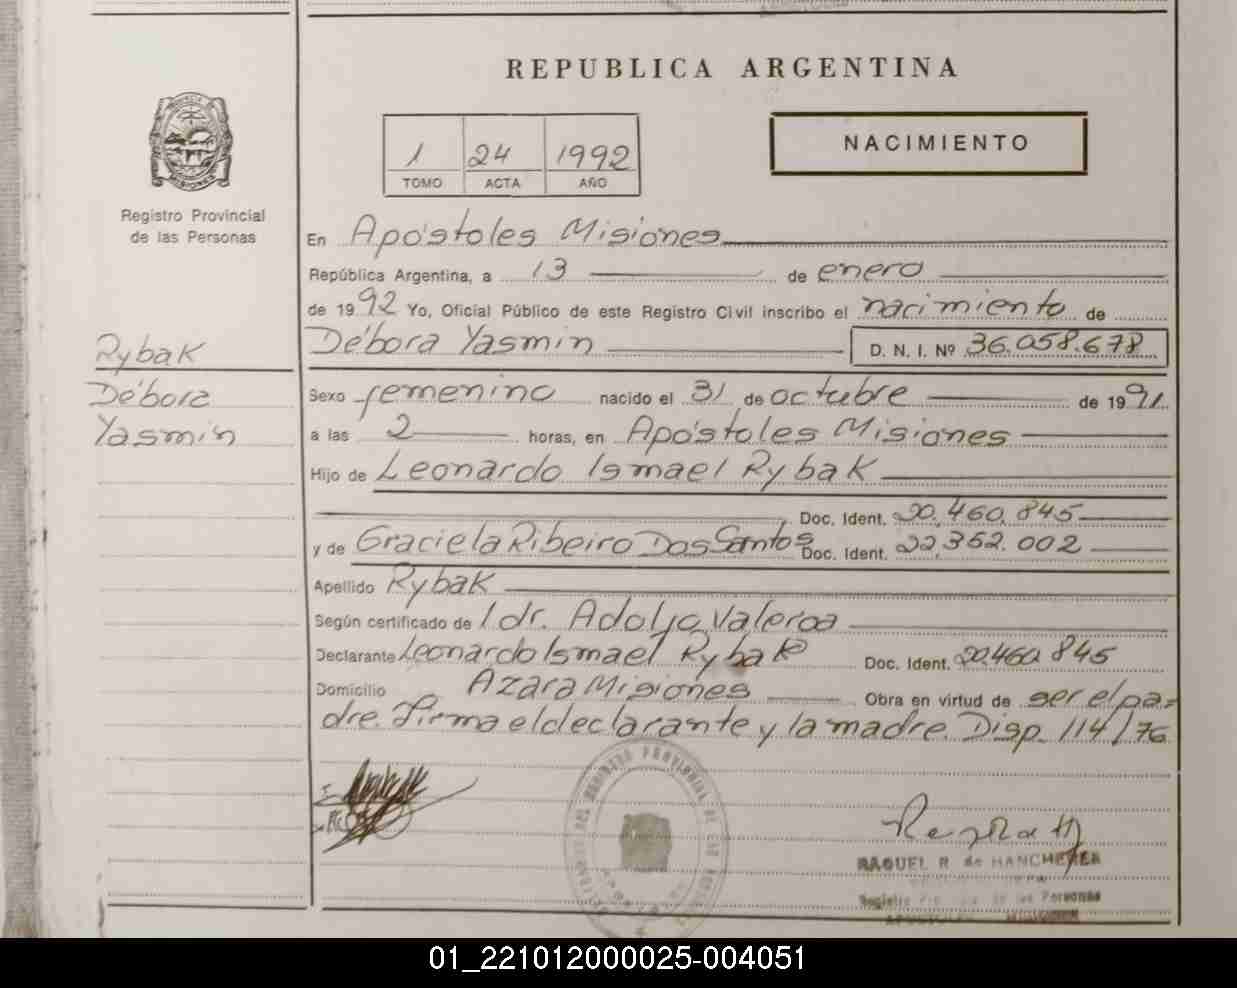 REPUBLICA ARGENTINA
1 24 1992
TOMO ACTA AÑO
NACIMIENTO
Registro Provincial
de las Personas
En Apóstoles Misiones
República Argentina, a 13 de enero
de 1992 Yo, Oficial Público de este Registro Civil inscribo el nacimiento de
Débora Yasmin D. N. I. Nº 36.058.678
Rybak
Débora
Yasmin
Sexo femenino nacido el 31 de octubre de 1991
a las 2 horas, en Apóstoles Misiones
Hijo de Leonardo Ismael Rybak
Doc. Ident. 20.460.845
y de Graciela Ribeiro Dos Santos Doc. Ident. 22.362.002
Apellido Rybak
Según certificado de 1 dr. Adolfo Valeroa
Declarante Leonardo Ismael Rybak Doc. Ident. 20.460.845
Domicilio Azara Misiones Obra en virtud de ser el pa=
dre. Firma el declarante y la madre. Disp. 114/76
RAQUEL R. de
Registro de las Personas
MISIONES
01_221012000025-004051